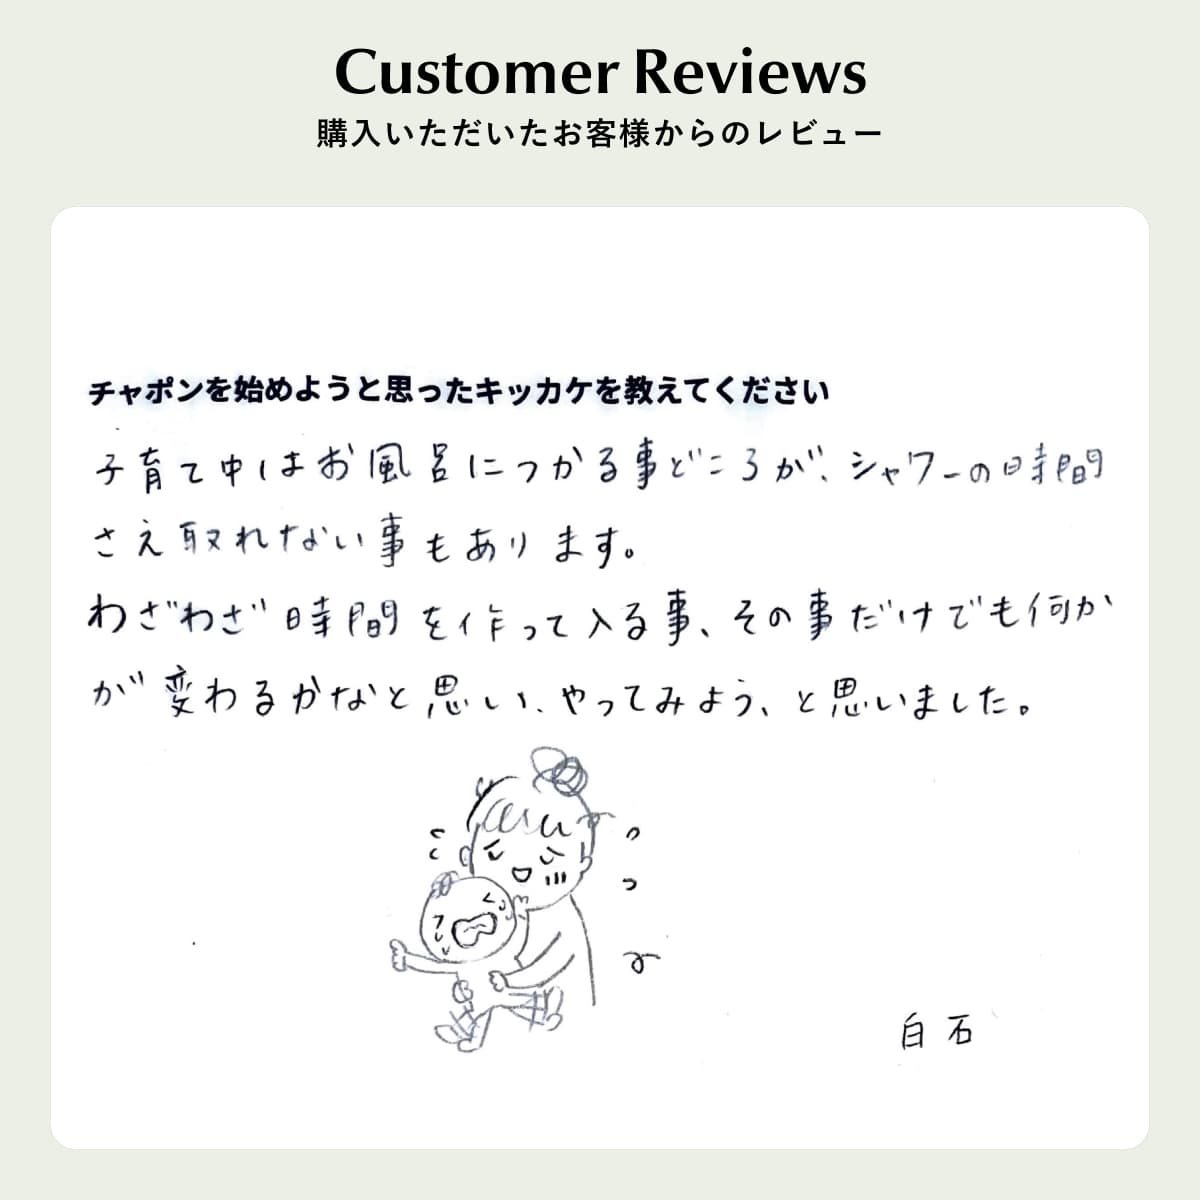 Customer Reviews
購入いただいたお客様からのレビュー
チャポンを始めようと思ったキッカケを教えてください
子育て中はお風呂につかる事どころが、シャワーの時間
さえ取れない事もあります。
わざわざ時間を作って入る事、その事だけでも何か
が変わるかなと思い、やってみよう、と思いました。
白石